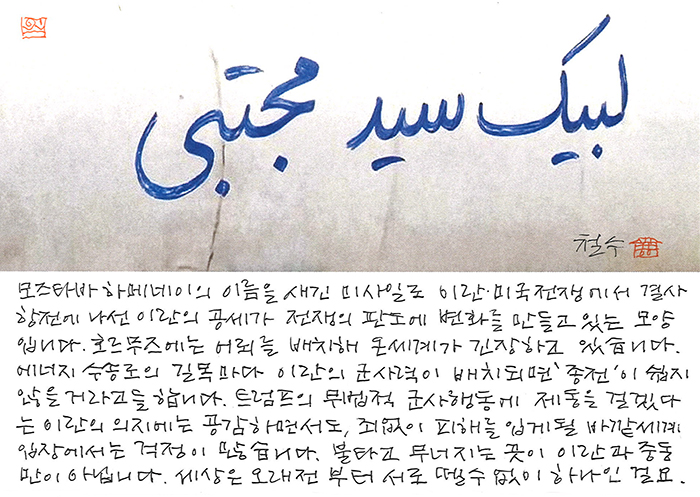 لبیک سید مجتبی
철수
모즈타바 하메네이의 이름을 새긴 미사일로 이란·미국전쟁에서 결사
항전에 나선 이란의 공세가 전쟁의 판도에 변화를 만들고 있는 모양
입니다. 호르무즈에는 어뢰를 배치해 온세계가 긴장하고 있습니다.
에너지 수송로의 길목마다 이란의 군사력이 배치되면 '종전'이 쉽지
않을 거라고들 합니다. 트럼프의 무법적 군사행동에 제동을 걸겠다
는 이란의 의지에는 공감하면서도, 죄없이 피해를 입게될 바깥세계
입장에서는 걱정이 많습니다. 불타고 무너지는 곳이 이란과 중동
만이 아닙니다. 세상은 오래전 부터 서로 뗄수 없이 하나인 걸요.